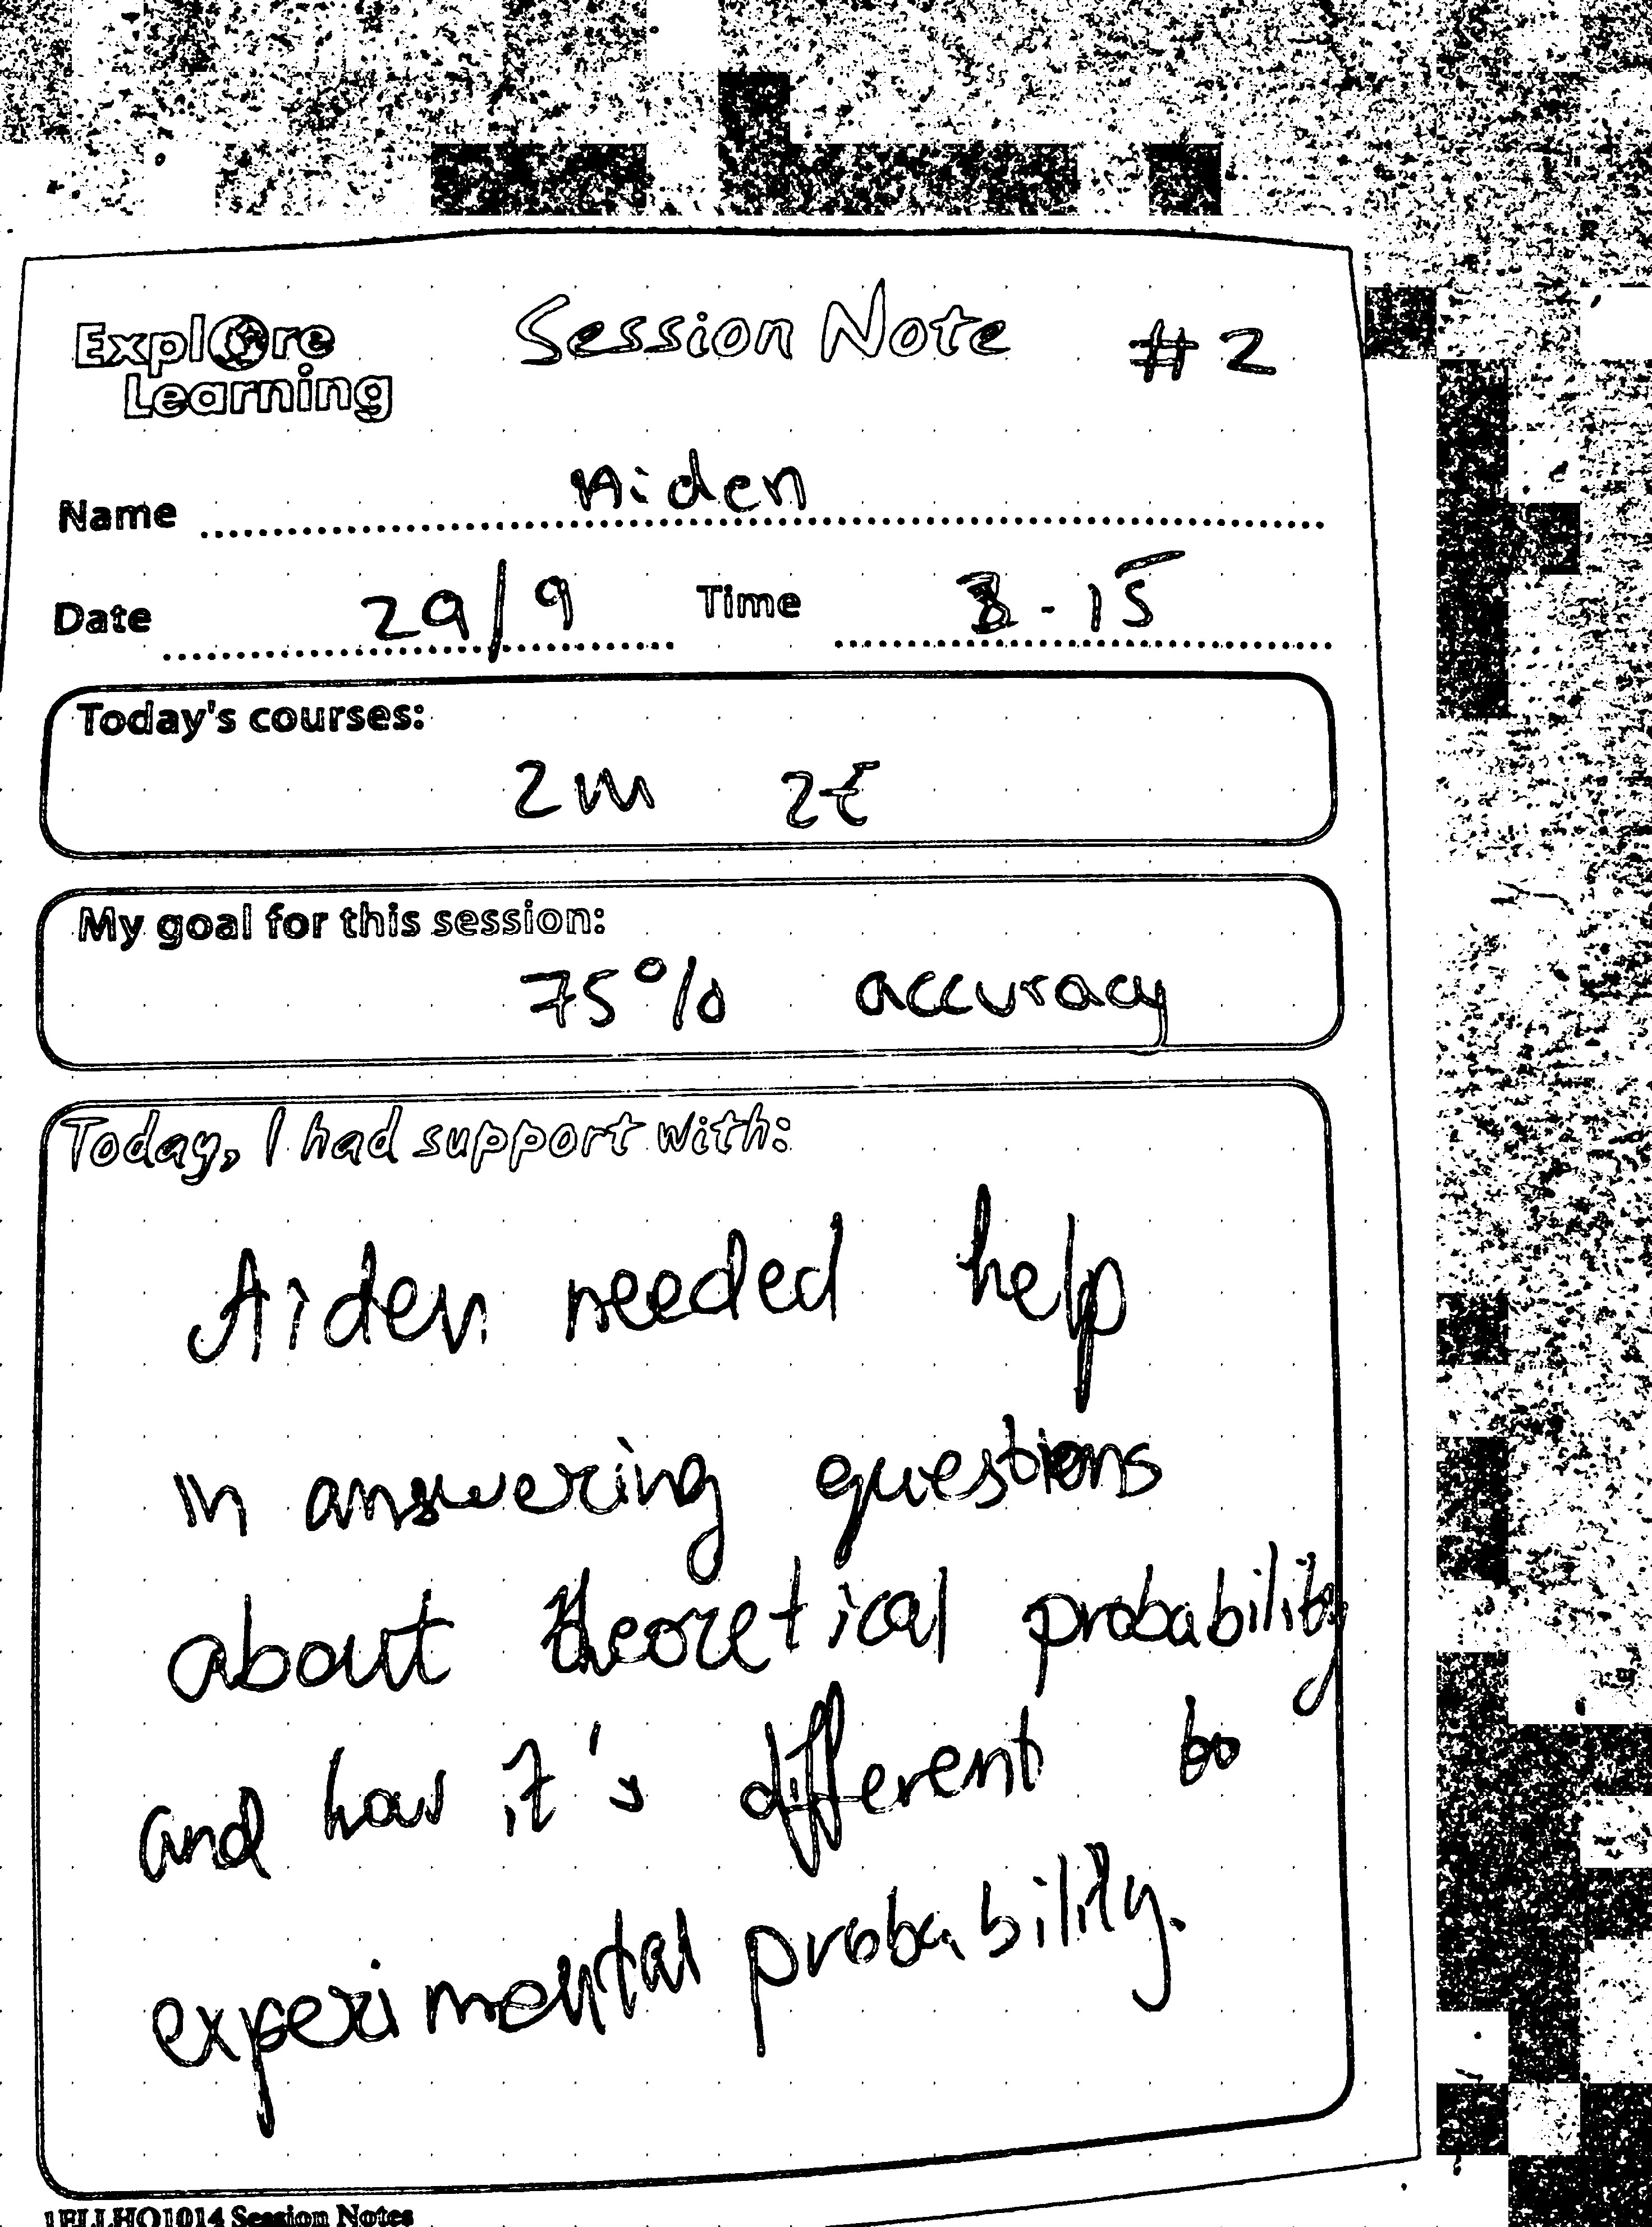 Explore
Learning
Session Note #2
Name Aiden
Date 29/9 Time - 15
Today's courses:
2m 2E
My goal for this session:
75% accuracy
Today, I had support with:
Aiden needed help
in answering questions
about theoretical probability
and how it's different to
experimental probability.
Session Notes